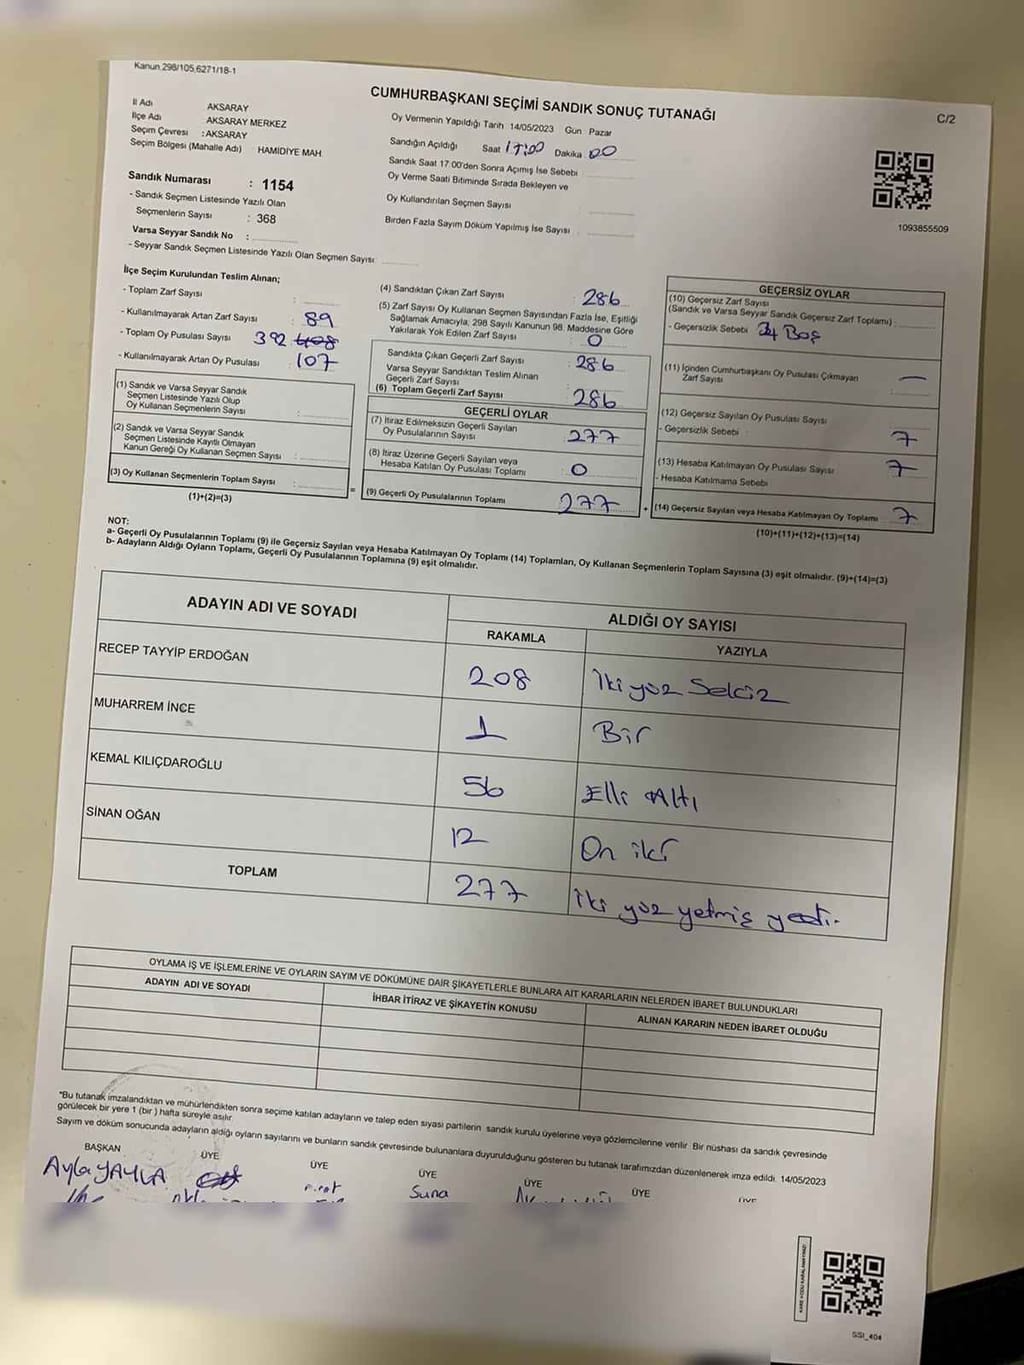 Kanun 298/105,6271/18-1
CUMHURBAŞKANI SEÇİMİ SANDIK SONUÇ TUTANAĞI
C/2
İl Adı AKSARAY
İlçe Adı AKSARAY MERKEZ
Seçim Çevresi : AKSARAY
Seçim Bölgesi (Mahalle Adı) HAMİDİYE MAH.
Oy Vermenin Yapıldığı Tarih 14/05/2023 Gün Pazar
Sandığın Açıldığı Saat 17:00 Dakika 00
Sandık Saat 17:00'den Sonra Açımış İse Sebebi
Oy Verme Saati Bitiminde Sırada Bekleyen ve
Oy Kullandırılan Seçmen Sayısı
Birden Fazla Sayım Döküm Yapılmış İse Sayısı :
1093855509
Sandık Numarası : 1154
- Sandık Seçmen Listesinde Yazılı Olan
Seçmenlerin Sayısı : 368
Varsa Seyyar Sandık No :
- Seyyar Sandık Seçmen Listesinde Yazılı Olan Seçmen Sayısı:
İlçe Seçim Kurulundan Teslim Alınan;
- Toplam Zarf Sayısı :
- Kullanılmayarak Artan Zarf Sayısı : 89
- Toplam Oy Pusulası Sayısı : 392 408
- Kullanılmayarak Artan Oy Pusulası : 107
(1) Sandık ve Varsa Seyyar Sandık
Seçmen Listesinde Yazılı Olup
Oy Kullanan Seçmenlerin Sayısı :
(2) Sandık ve Varsa Seyyar Sandık
Seçmen Listesinde Kayıtlı Olmayan
Kanun Gereği Oy Kullanan Seçmen Sayısı :
(3) Oy Kullanan Seçmenlerin Toplam Sayısı :
(1)+(2)=(3)
(4) Sandıktan Çıkan Zarf Sayısı : 286
(5) Zarf Sayısı Oy Kullanan Seçmen Sayısından Fazla İse, Eşitliği
Sağlamak Amacıyla; 298 Sayılı Kanunun 98. Maddesine Göre
Yakılarak Yok Edilen Zarf Sayısı : 0
Sandıkta Çıkan Geçerli Zarf Sayısı : 286
Varsa Seyyar Sandıktan Teslim Alınan
Geçerli Zarf Sayısı
(6) Toplam Geçerli Zarf Sayısı : 286
GEÇERLİ OYLAR
(7) İtiraz Edilmeksizin Geçerli Sayılan
Oy Pusulalarının Sayısı : 277
(8) İtiraz Üzerine Geçerli Sayılan veya
Hesaba Katılan Oy Pusulası Toplamı : 0
= (9) Geçerli Oy Pusulalarının Toplamı : 277 +
GEÇERSİZ OYLAR
(10) Geçersiz Zarf Sayısı
(Sandık ve Varsa Seyyar Sandık Geçersiz Zarf Toplamı) :
- Geçersizlik Sebebi : Boş
(11) İçinden Cumhurbaşkanı Oy Pusulası Çıkmayan
Zarf Sayısı —
(12) Geçersiz Sayılan Oy Pusulası Sayısı :
- Geçersizlik Sebebi : 7
(13) Hesaba Katılmayan Oy Pusulası Sayısı : 7
- Hesaba Katılmama Sebebi
(14) Geçersiz Sayılan veya Hesaba Katılmayan Oy Toplamı 7
(10)+(11)+(12)+(13)=(14)
NOT:
a- Geçerli Oy Pusulalarının Toplamı (9) ile Geçersiz Sayılan veya Hesaba Katılmayan Oy Toplamı (14) Toplamları, Oy Kullanan Seçmenlerin Toplam Sayısına (3) eşit olmalıdır. (9)+(14)=(3)
b- Adayların Aldığı Oyların Toplamı, Geçerli Oy Pusulalarının Toplamına (9) eşit olmalıdır.
ADAYIN ADI VE SOYADI ALDIĞI OY SAYISI
RAKAMLA YAZIYLA
RECEP TAYYİP ERDOĞAN 208 İki yüz Sekiz
MUHARREM İNCE 1 Bir
KEMAL KILIÇDAROĞLU 56 Elli Altı
SİNAN OĞAN 12 On iki
TOPLAM 277 İki yüz yetmiş yedi.
OYLAMA İŞ VE İŞLEMLERİNE VE OYLARIN SAYIM VE DÖKÜMÜNE DAİR ŞİKAYETLERLE BUNLARA AİT KARARLARIN NELERDEN İBARET BULUNDUKLARI
ADAYIN ADI VE SOYADI İHBAR İTİRAZ VE ŞİKAYETİN KONUSU ALINAN KARARIN NEDEN İBARET OLDUĞU
*Bu tutanak imzalandıktan ve mühürlendikten sonra seçime katılan adayların ve talep eden siyasi partilerin sandık kurulu üyelerine veya gözlemcilerine verilir. Bir nüshası da sandık çevresinde
görülecek bir yere 1 (bir) hafta süreyle asılır.
Sayım ve döküm sonucunda adayların aldığı oyların sayılarını ve bunların sandık çevresinde bulunanlara duyurulduğunu gösteren bu tutanak tarafımızdan düzenlenerek imza edildi. 14/05/2023
BAŞKAN ÜYE ÜYE ÜYE ÜYE ÜYE ÜYE
Ayla YAYLA Suna
SSI_404